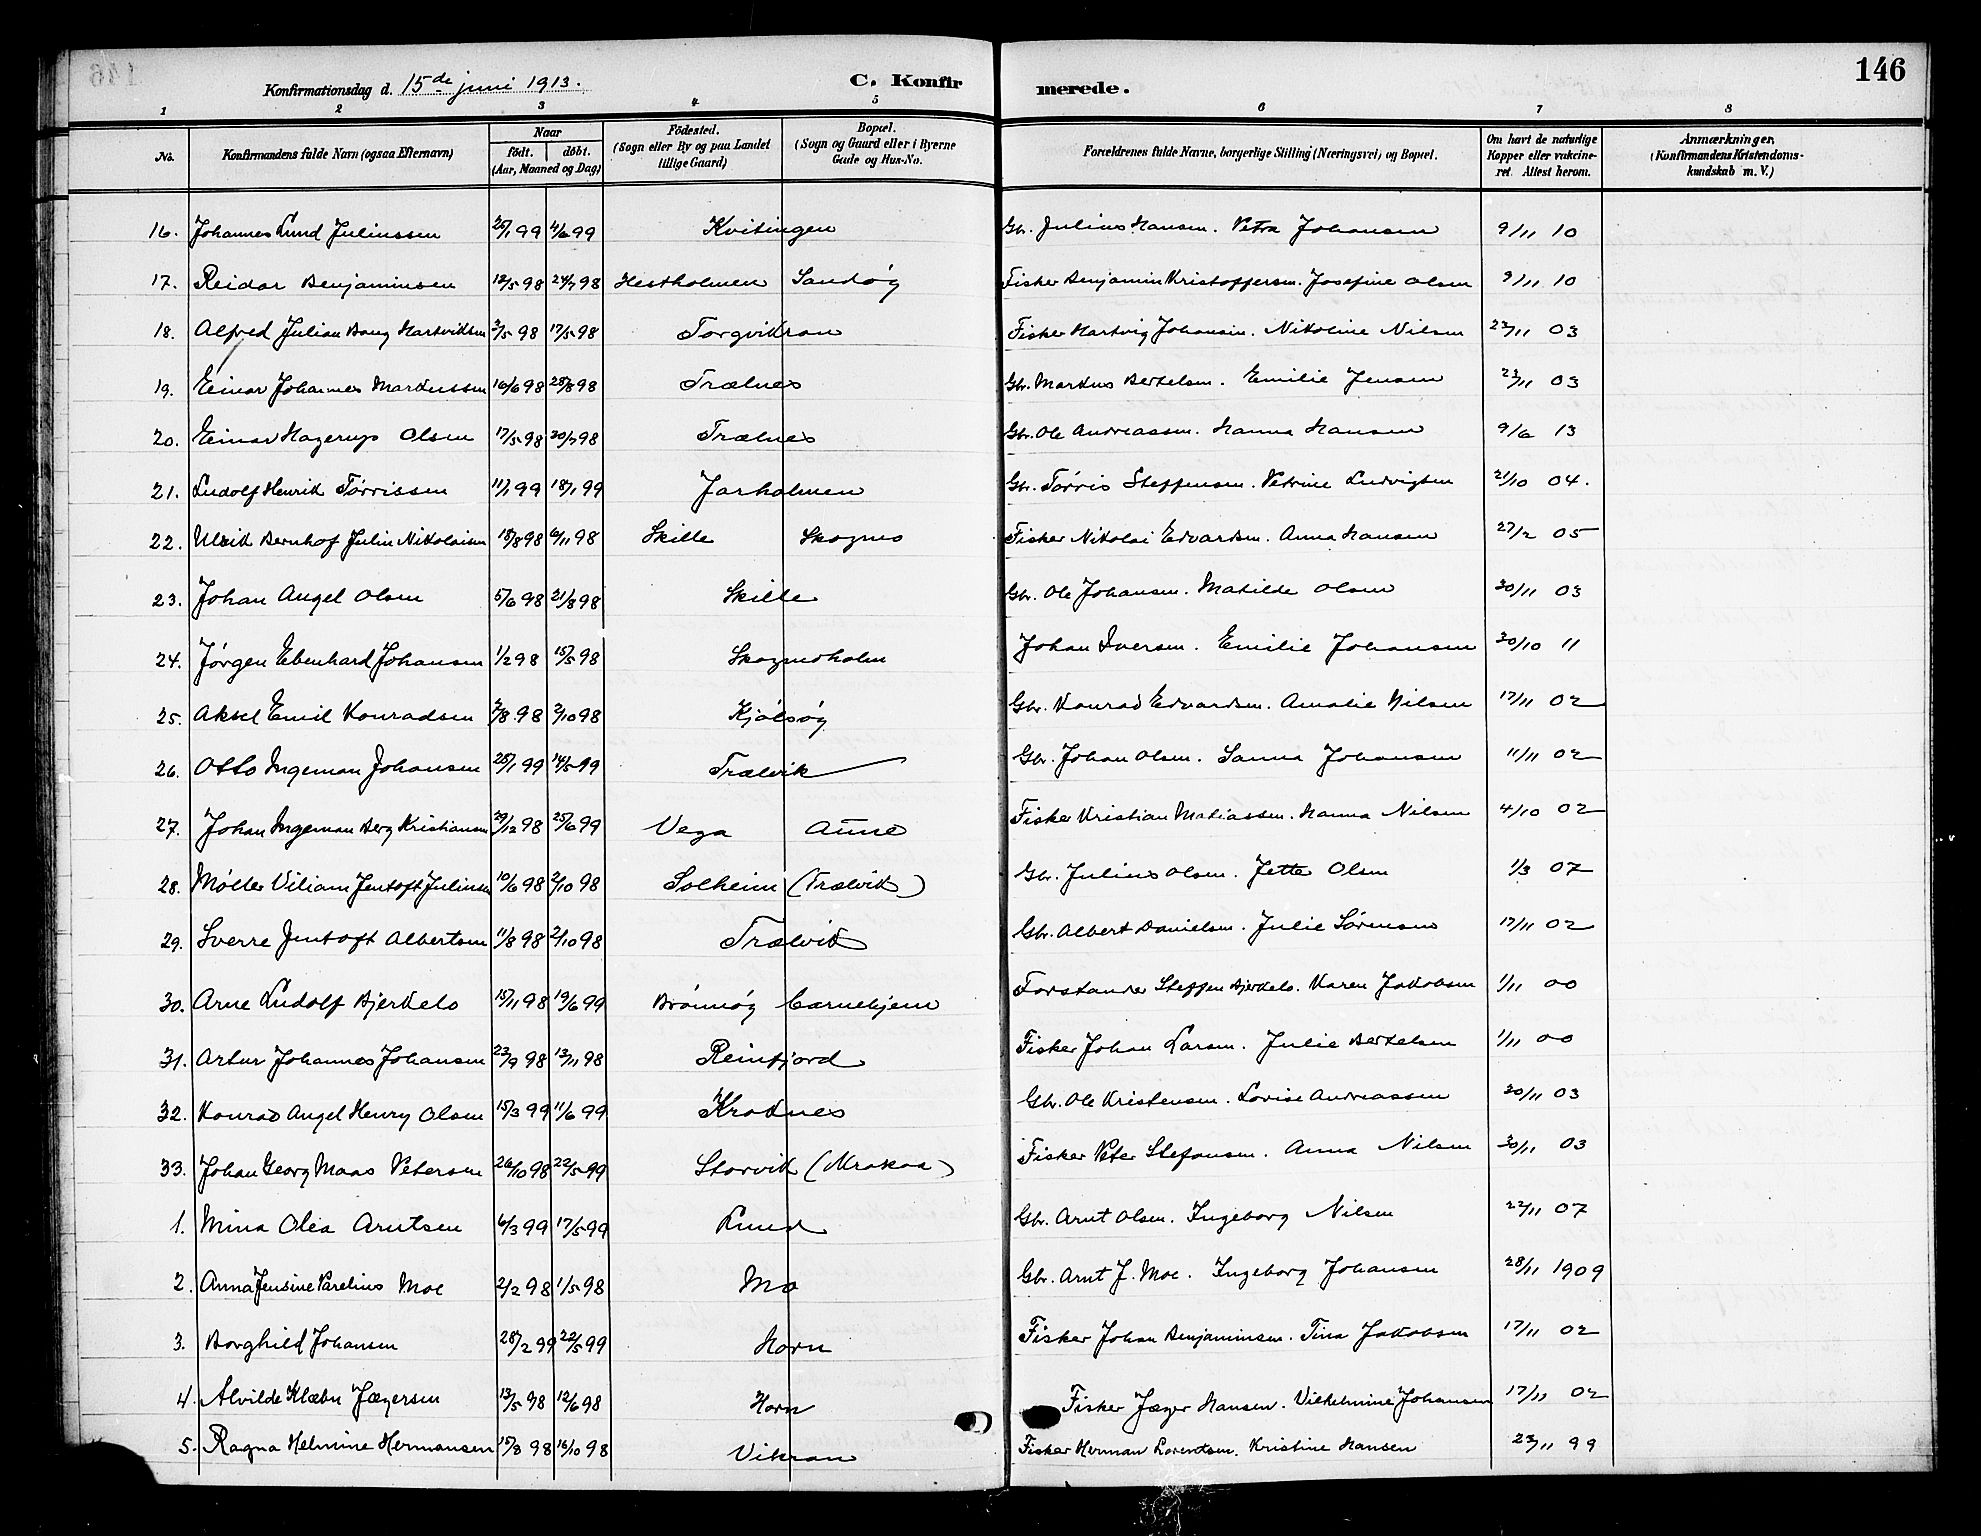 146
Konfirmationsdag d. 15de juni 1913.
C. Konfirmerede.
1 2 3 4 5 6 7 8
No. Konfirmandens fulde Navn (ogsaa Efternavn) Naar født. døbt. (Aar, Maaned og Dag) Fødested. (Sogn eller By og paa Landet tillige Gaard) Bopæl. (Sogn og Gaard eller i Byerne Gade og Hus-No. Forældrenes fulde Navne, borgerlige Stilling (Næringsvei) og Bopæl. Om havt de naturlige Kopper eller vakcineret. Attest herom. Anmærkninger. (Konfirmandens Kristendomskundskab m. V.)
16. Johannes Lund Juliussen 99 4/6 99 Kvitingen Gbr. Julius Hansen. Petra Johansen 9/11 10
17. Reidar Benjaminsen 12/5 98 24/7 98 Hestholmen Sandøy Fisker Benjamin Kristoffersen. Josefine Olsen 9/11 10
18. Alfred Julian Hartviksen 98 17/5 98 Torgvikran Fisker Hartvig Johansen. Nikoline Nilsen 03
19. Einar Johannes Markussen 16/6 98 28/8 98 Trælnes Gbr. Markus Bertelsen. Emilie Jensen 23/11 03
20. Einar Hagerup Olsen 17/5 98 20/7 98 Trælnes Gbr. Ole Andreassen. Hanna Hansen 9/6 13
21. Ludolf Henrik Tørrissen 11/1 99 18/1 99 Jarholmen Gbr. Tørris Steffensen. Petrine Ludvigsen 21/10 04.
22. Ulrik Bernhof Julin Nikolaisen 18/8 98 6/11 98 Skille Skogmo Fisker Nikolai Edvardsen. Anna Hansen 27/2 05
23. Johan Angel Olsen 5/6 98 21/8 98 Skille Gbr. Ole Johansen. Matilde Olsen 30/11 03
24. Jørgen Ebenhard Johansen 1/2 98 15/5 98 Skogmoholm Johan Iversen. Emilie Johansen 30/10 11
25. Aksel Emil Konradsen 98 2/10 98 Kjølsøy Gbr. Konrad Edvardsen. Amalie Nilsen 17/11 02
26. Otto Ingeman Johansen 28/1 99 14/5 99 Trælvik Gbr. Johan Olsen. Sanna Johansen 11/11 02
27. Johan Ingeman Berg Kristiansen 29/12 98 25/6 99 Vega Aune Fisker Kristian Matiassen. Hanna Nilsen 4/10 02
28. Møller Viliam Jentoft Juliussen 10/6 98 2/10 98 Solheim (Trælvik) Gbr. Julius Olsen. Jette Olsen 1/3 07
29. Sverre Jentoft Albertsen 11/8 98 2/10 98 Trælvik Gbr. Albert Danielsen. Julie Sørensen 17/11 02
30. Arne Ludolf Bjerkelo 15/11 98 19/6 99 Brønnøy Barnehjem Forstander Steffen Bjerkelo. Karen Jakobsen 1/11 00
31. Artur Johannes Johansen 23/9 98 13/11 98 Reinfjord Fisker Johan Larsen. Julie Bertelsen 1/11 00
32. Konrad Angel Henry Olsen 15/3 99 11/6 99 Kroknes Gbr. Ole Kristensen. Lovise Andreassen 30/11 03
33. Johan Georg Maas Petersen 26/10 98 22/5 99 Storvik Fisker Peter Stefansen. Anna Nilsen 30/11 03
1. Mina Olea Arntsen 6/3 99 17/5 99 Lund Gbr. Arnt Olsen. Ingeborg Nilsen 22/11 07
2. Anna Jensine Parelius Moe 2/2 98 1/5 98 Mo Gbr. Arnt J. Moe. Ingeborg Johansen 28/11 1909
3. Borghild Johansen 28/2 99 22/5 99 Horn Fisker Johan Benjaminsen. Tina Jakobsen 17/11 02
4. Alvilde Klæbu Jægersen 13/5 98 12/6 98 Horn Fisker Jæger Hansen. Vilhelmine Johansen 17/11 02
5. Ragna Helmine Hermansen 15/8 98 16/10 98 Vikran Fisker Herman Lorentsen. Kristine Hansen 23/11 99